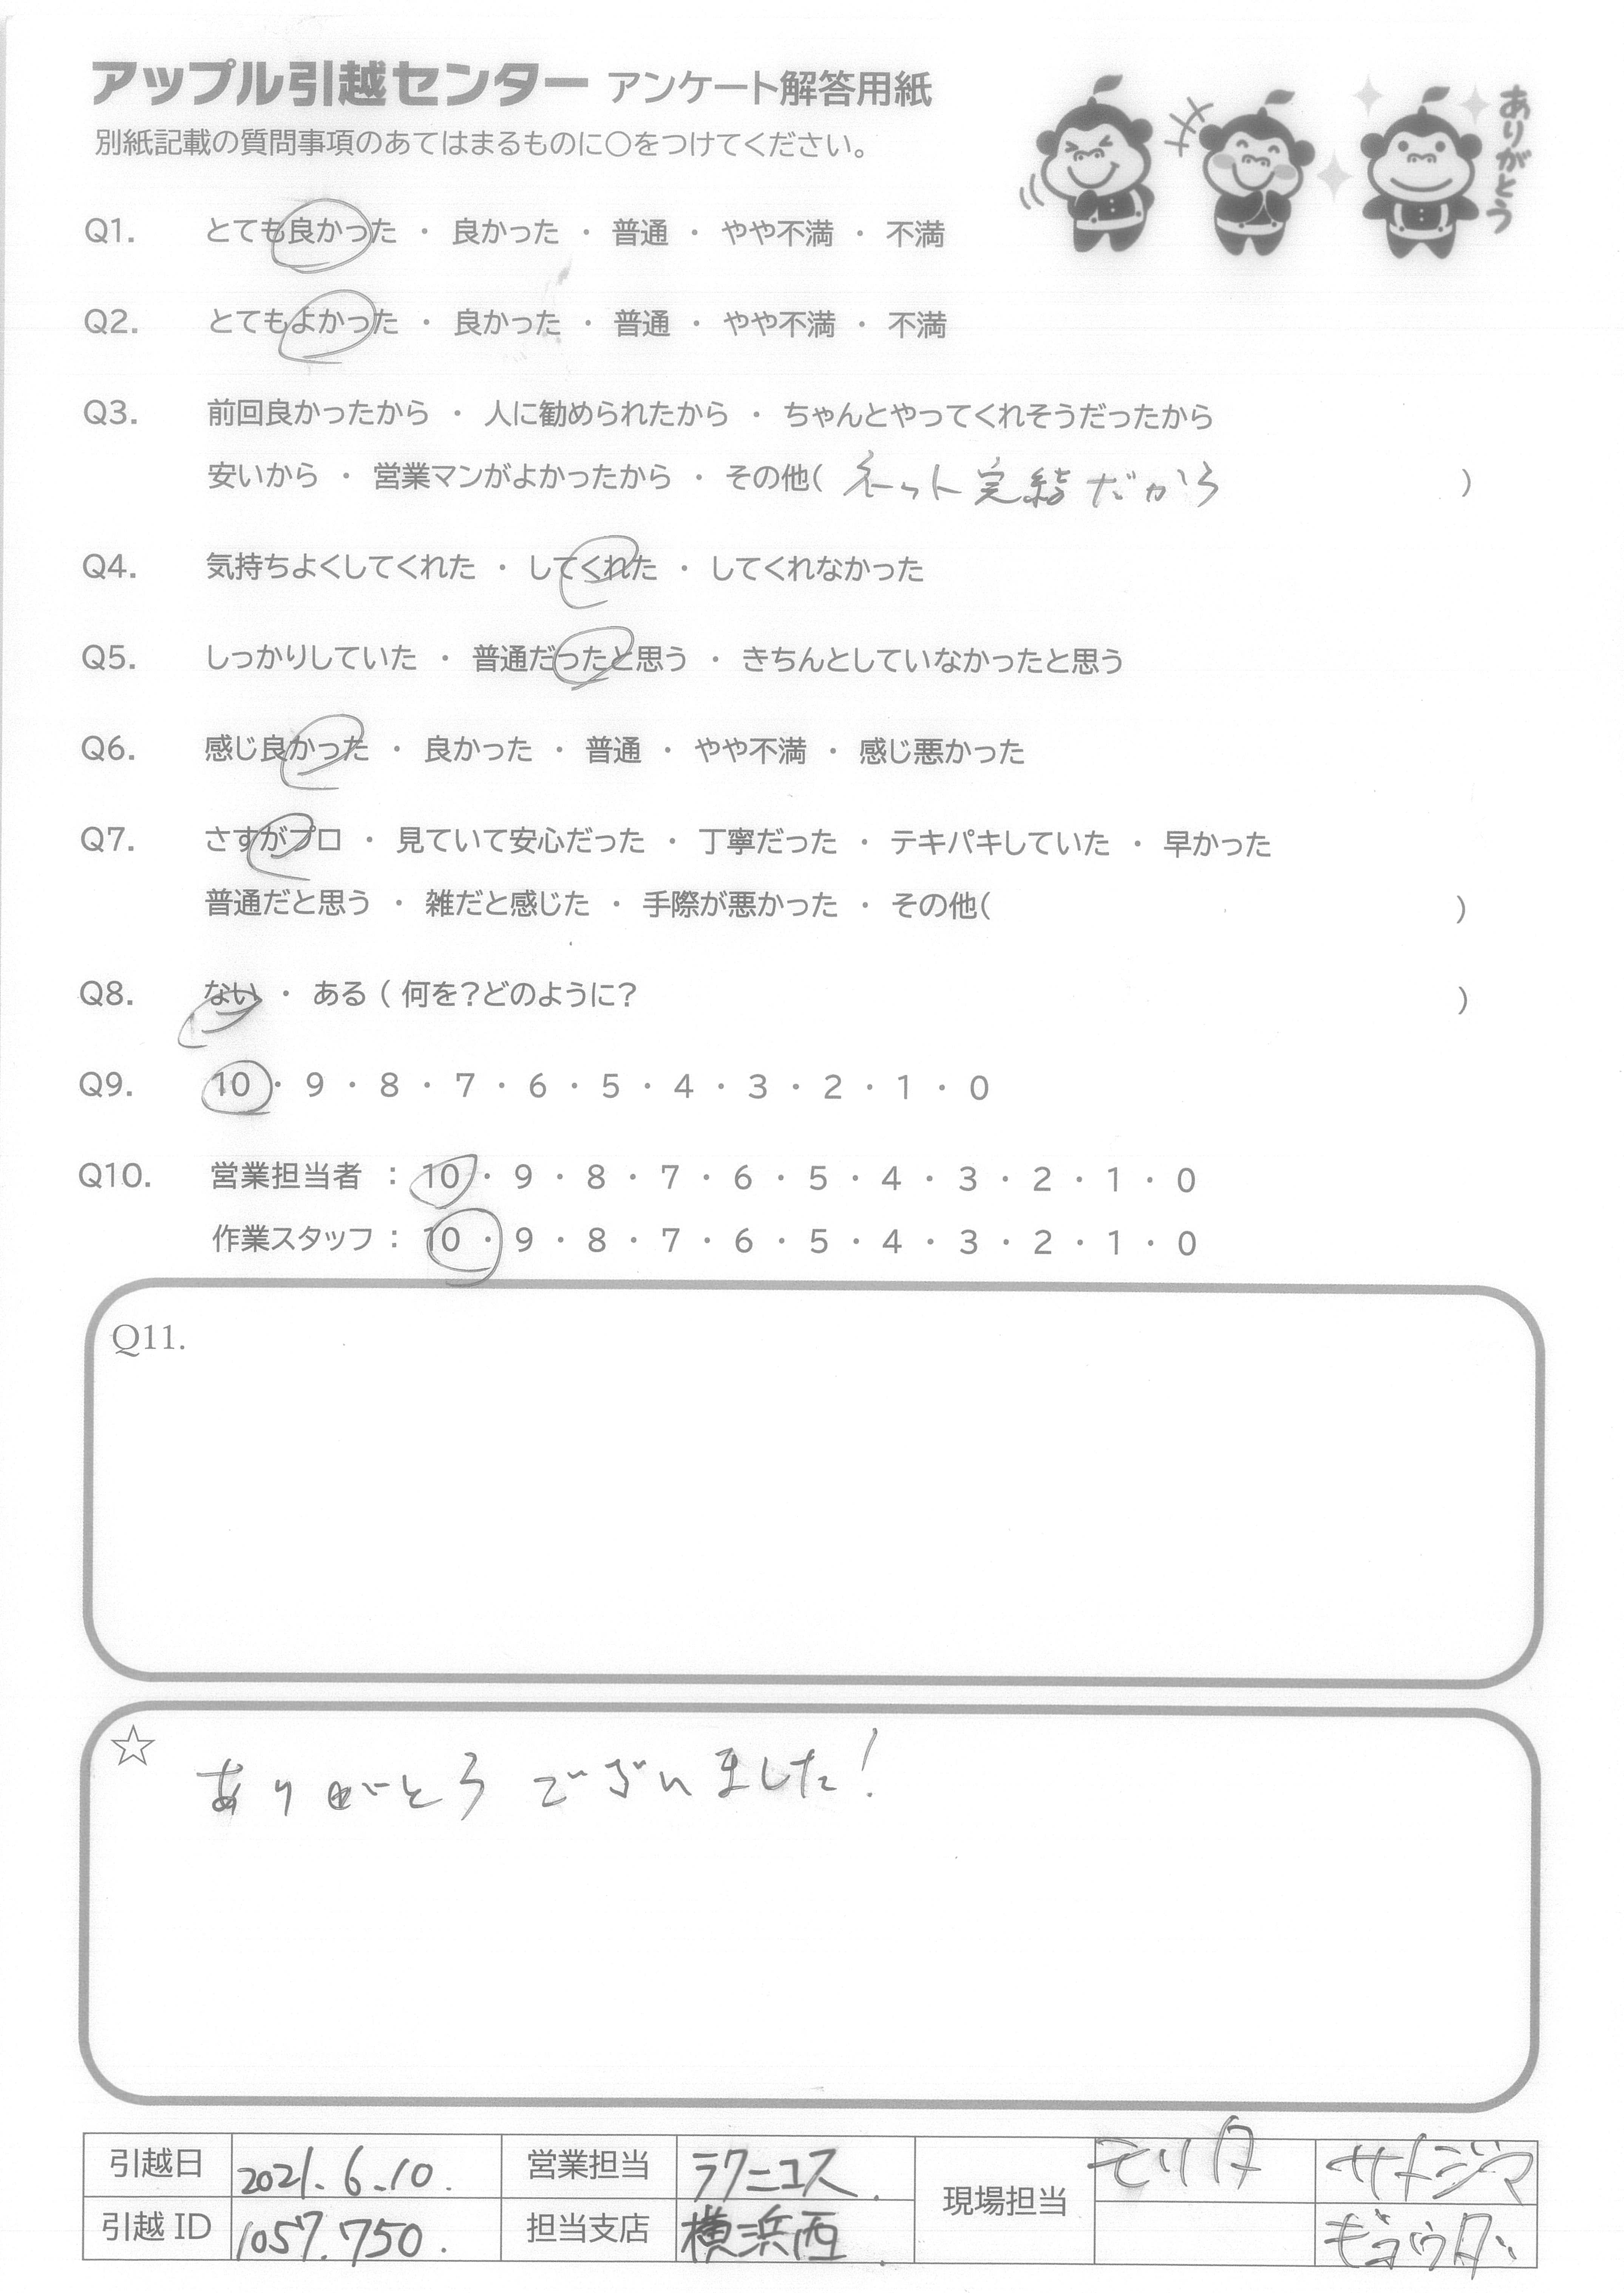 アップル引越センター アンケート解答用紙
別紙記載の質問事項のあてはまるものに〇をつけてください。
ありがとう
Q1. とても良かった ・ 良かった ・ 普通 ・ やや不満 ・ 不満
Q2. とてもよかった ・ 良かった ・ 普通 ・ やや不満 ・ 不満
Q3. 前回良かったから ・ 人に勧められたから ・ ちゃんとやってくれそうだったから
安いから ・ 営業マンがよかったから ・ その他( ネット完結だから )
Q4. 気持ちよくしてくれた ・ してくれた ・ してくれなかった
Q5. しっかりしていた ・ 普通だったと思う ・ きちんとしていなかったと思う
Q6. 感じ良かった ・ 良かった ・ 普通 ・ やや不満 ・ 感じ悪かった
Q7. さすがプロ ・ 見ていて安心だった ・ 丁寧だった ・ テキパキしていた ・ 早かった
普通だと思う ・ 雑だと感じた ・ 手際が悪かった ・ その他( )
Q8. ない ・ ある ( 何を?どのように? )
Q9. 10 ・ 9 ・ 8 ・ 7 ・ 6 ・ 5 ・ 4 ・ 3 ・ 2 ・ 1 ・ 0
Q10. 営業担当者 : 10 ・ 9 ・ 8 ・ 7 ・ 6 ・ 5 ・ 4 ・ 3 ・ 2 ・ 1 ・ 0
作業スタッフ : 10 ・ 9 ・ 8 ・ 7 ・ 6 ・ 5 ・ 4 ・ 3 ・ 2 ・ 1 ・ 0
Q11.
☆ ありがとうございました!
引越日 2021.6.10. 営業担当 ラクニコス. 現場担当 モリタ サトジマ
引越 ID 1057.750. 担当支店 横浜西.